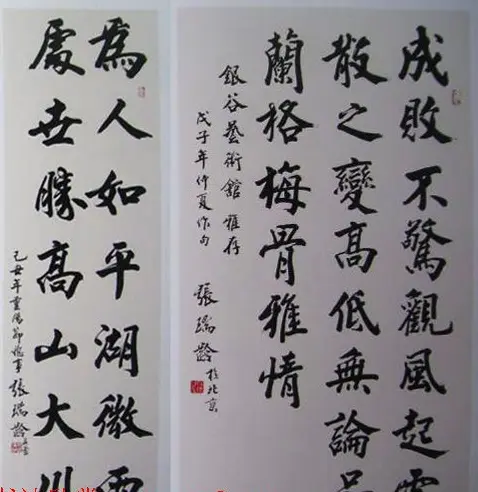 成敗不驚觀風起雲
散之變高低無論品
蘭格梅骨雅情
銀谷藝術館雅存
戊子年仲夏作句
張瑞齡於北京
為人如平湖微雨
處世勝高山大川
己丑年重陽節
張瑞齡